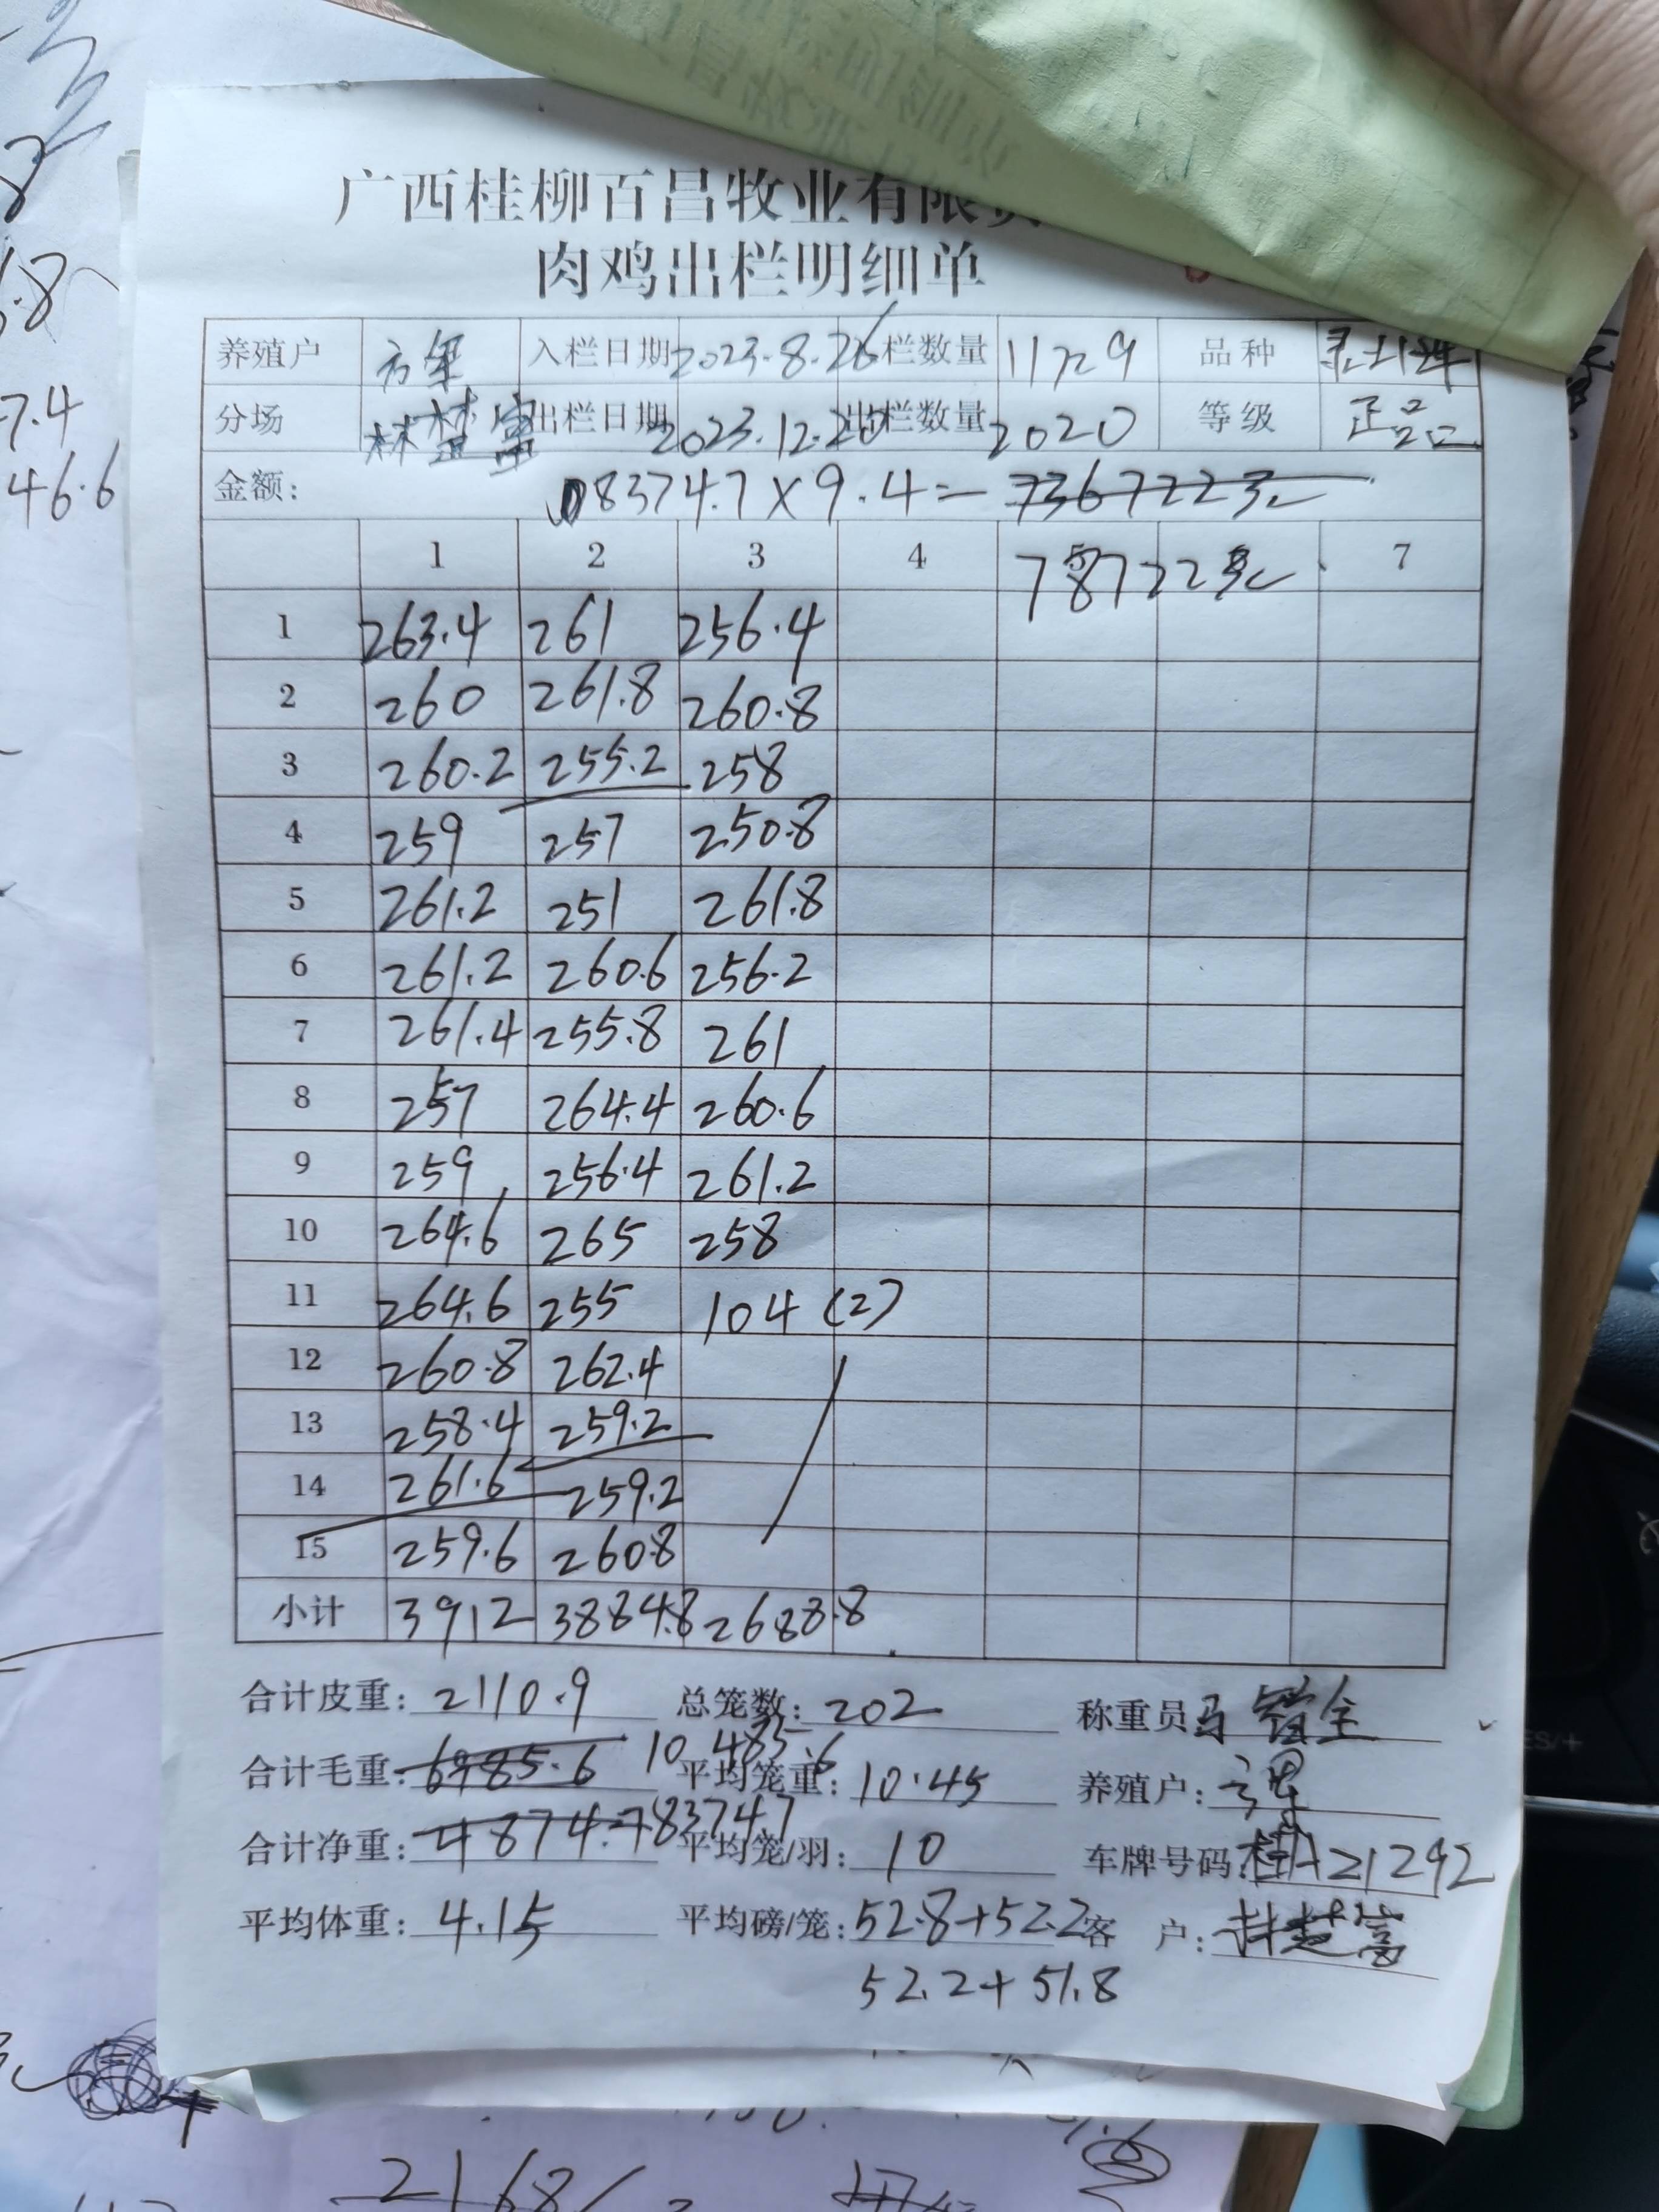 广西桂柳百昌牧业有限
肉鸡出栏明细单
养殖户 入栏日期 2023.8.26 栏数量 11729 品种
分场 林楚富 出栏日期 2023.12.20 出栏数量 2020 等级 正品
金额: 8374.7×9.4= 73672元
1 2 3 4 78722元 7
1 263.4 261 256.4
2 260 261.8 260.8
3 260.2 255.2 258
4 259 257 250.8
5 261.2 251 261.8
6 261.2 260.6 256.2
7 261.4 255.8 261
8 257 264.4 260.6
9 259 256.4 261.2
10 264.6 265 258
11 264.6 255 104 (2)
12 260.8 262.4
13 258.4 259.2
14 261.6 259.2
15 259.6 260.8
小计 3912 3884.8 2688.8
合计皮重: 2110.9 总笼数: 202 称重员
合计毛重: 6985.6 10485.6 平均笼重: 10.45 养殖户:
合计净重: 4874.7 8374.7 平均笼/羽: 10 车牌号码: 桂A21292
平均体重: 4.15 平均磅/笼: 52.8+52.2 客 户: 林楚富
52.2+51.8
7.4
46.6
2168